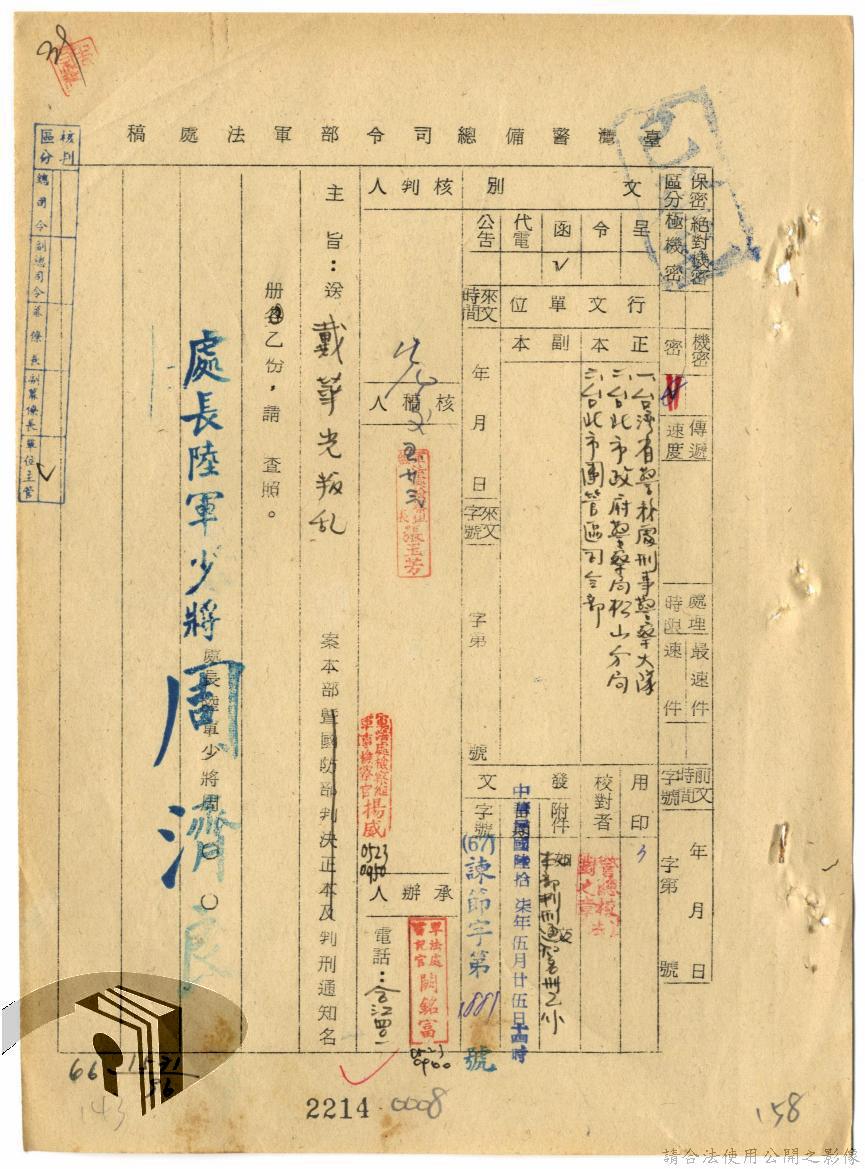 臺灣警備總司令部軍法處稿
保密區分
絕對機密
極機密
機密
密
傳遞速度
處理時限
最速件
速件
前文時間字號
年月日
字第號
文別
呈
令
函
ˇ
代電
公告
行文單位
正本
副本
一、台湾省警務處刑事警察大隊
二、台北市政府警察局松山分局
三、台北市團管區司令部
用印
校對者
發文
附件
如文
本部判刑通知名册乙份
來文時間
年月日
來文字號
字第號
中華民國陸拾柒年伍月廿五日
字號
(67)諫節字第1881號
核判人
核稿人
張玉芳
五廿三
軍法處檢察組
軍事檢察官楊威
0523
0950
承辦人
軍法處
書記官
關銘富
0523
0900
電話：
主旨：送戴華光叛乱案本部暨國防部判決正本及判刑通知名
册各乙份，請查照。
處長陸軍少將周濟良
處長陸軍少將周○○
核判區分
總司令
副總司令
幕僚長
副幕僚長
單位主管
ˇ
66
1571
36
143
2214
0008
158
請合法使用公開之影像